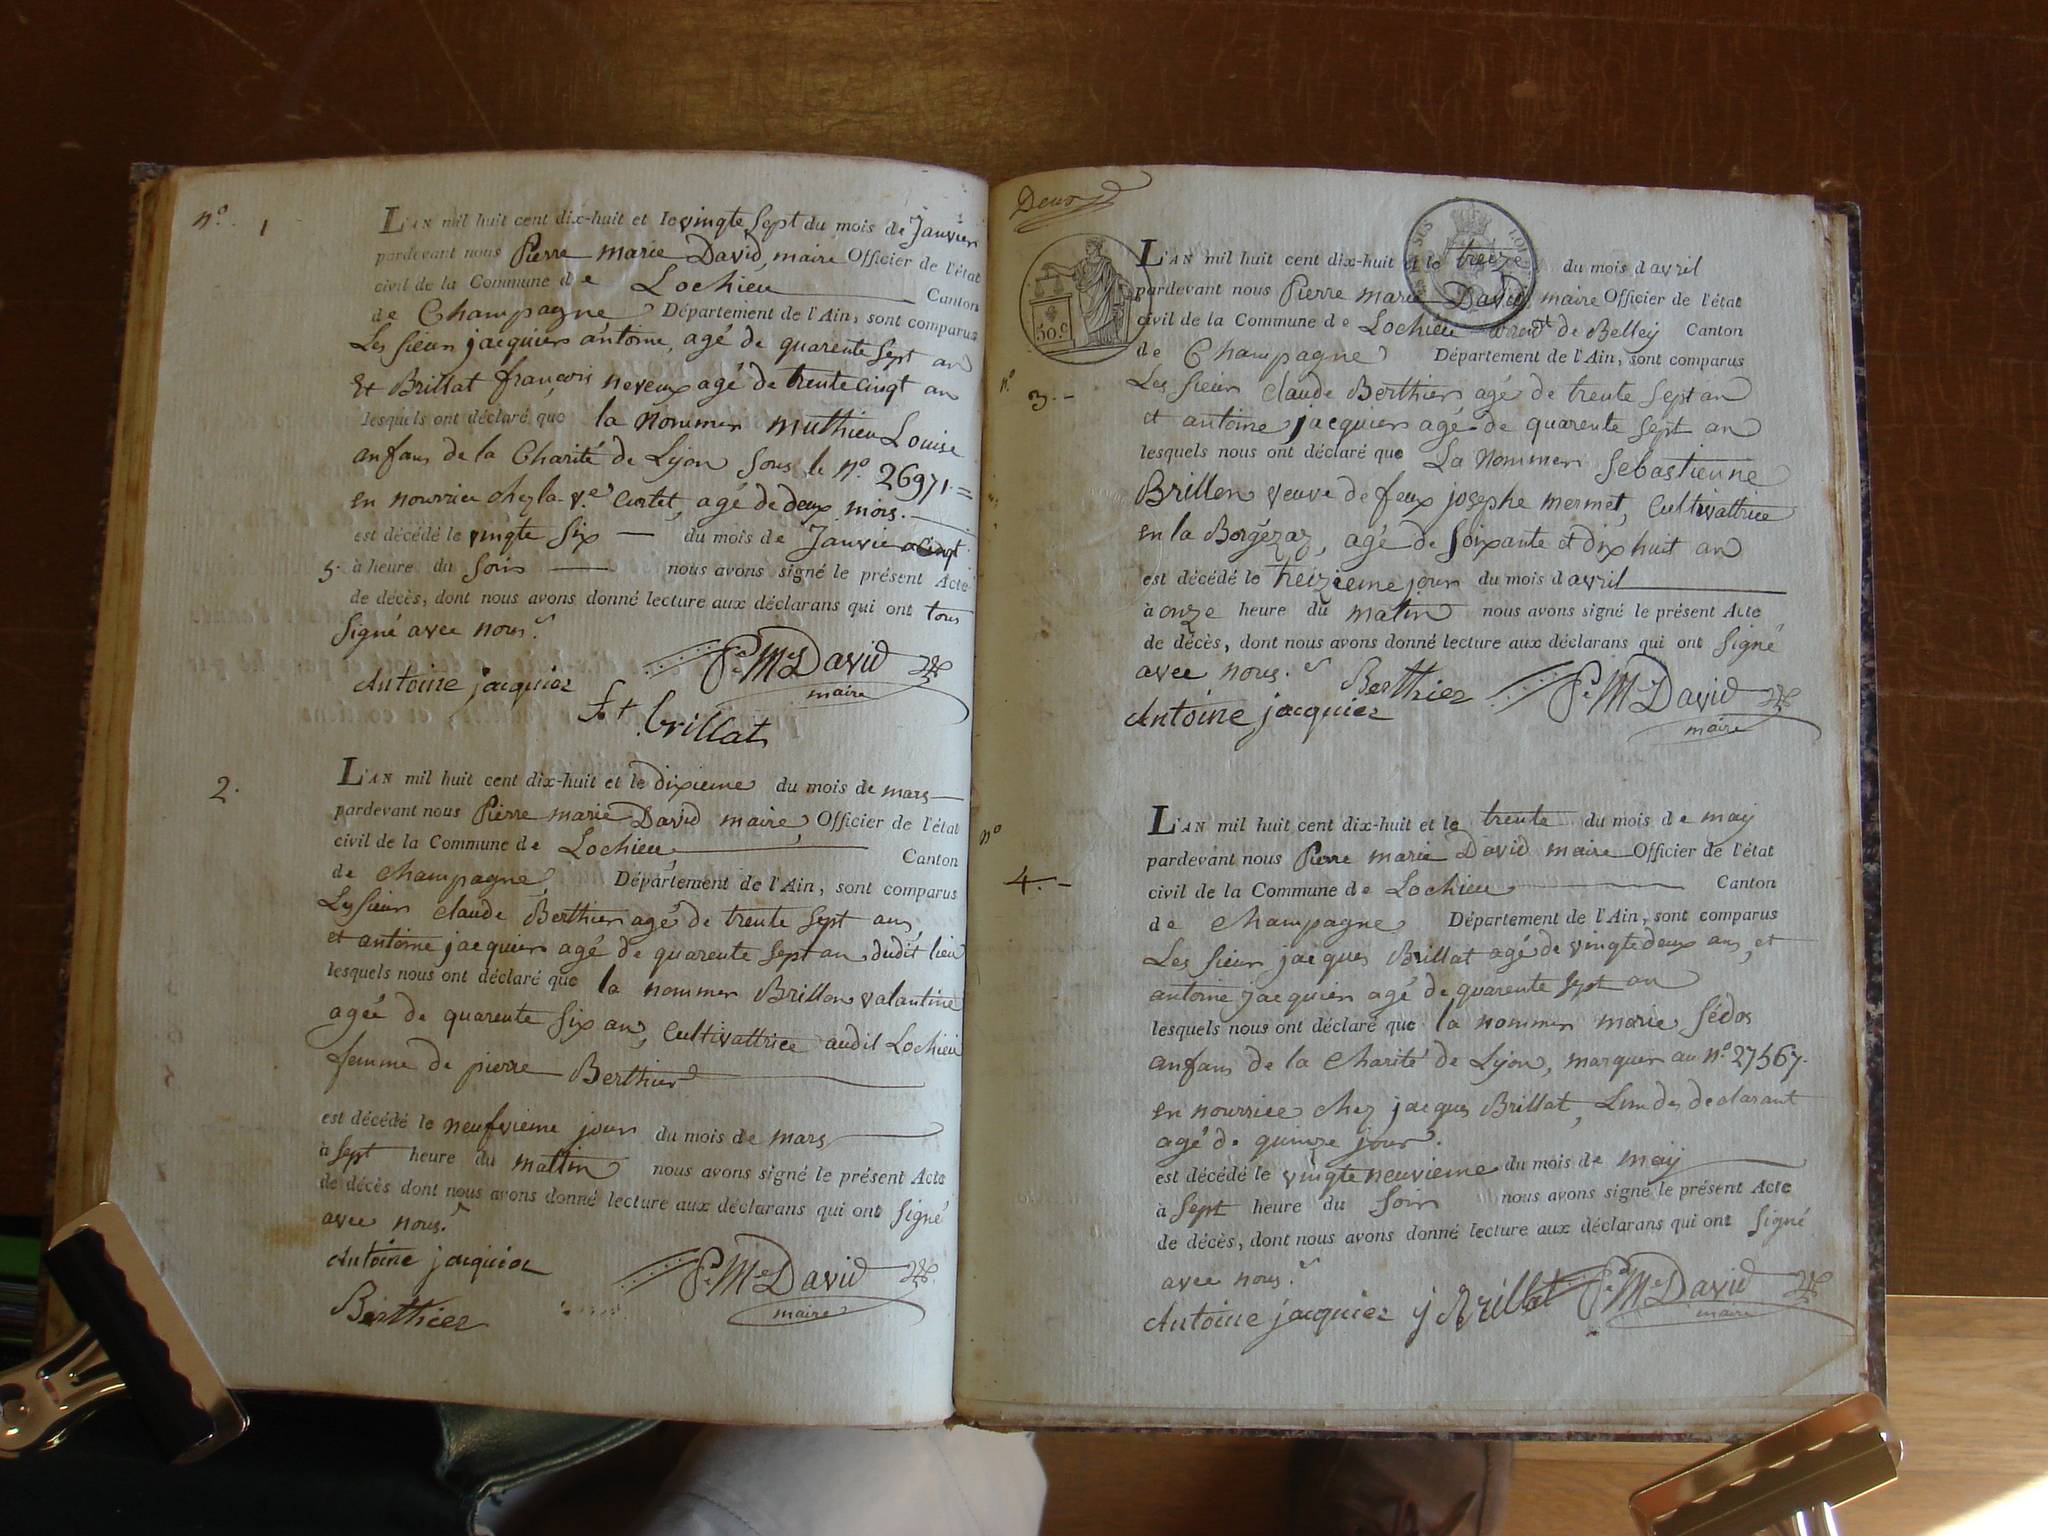 n.º 1
L'AN mil huit cent dix-huit et le vingte sept du mois de Janvier
pardevant nous Pierre marie David, maire Officier de l'état
civil de la Commune de Lochieu Canton
de Champagne Département de l'Ain, sont comparus
Les sieur jacquier antoine, agé de quarente sept an
Et Brillat françois neveux agé de trente cinqt an
lesquels ont déclaré que la nommer muthieu Louise
anfans de la Charité de Lyon sous le nº. 26971.=
en nourrice chez la v.e Curtet, agé de deux mois.
est décédé le vingte six du mois de Janvier a Cinqt
5. à heure du soir nous avons signé le présent Acte
de décès, dont nous avons donné lecture aux déclarans qui ont tous
signé avec nous.
P.e M.e David
maire
Antoine jacquier
f.t brillat
2.
L'AN mil huit cent dix-huit et le dixieme du mois de mars
pardevant nous Pierre marie David maire, Officier de l'état
civil de la Commune de Lochieu, Canton
de Champagne, Département de l'Ain, sont comparus
Les sieur Claude Berthier agé de trente sept ans,
et antoine jacquier agé de quarente sept an dudit lieu
lesquels nous ont déclaré que la nommer Brillon valantine
agée de quarente six an, Cultivattrice audit Lochieu
femme de pierre Berthier
est décédé le neufvieme jour du mois de mars
à sept heure du mattin nous avons signé le présent Acte
de décès dont nous avons donné lecture aux déclarans qui ont signé
avec nous.
Antoine jacquier
P.e M.e David
maire
Berthier
Deux
SUS
ROI
50.c
L'AN mil huit cent dix-huit et le treize du mois d avril
pardevant nous Pierre marie David, maire Officier de l'état
civil de la Commune de Lochieu arond.t de Belley Canton
de Champagne Département de l'Ain, sont comparus
n.º 3.-
Les sieur Claude Berthier agé de trente sept an
et antoine jacquier agé de quarente sept an
lesquels nous ont déclaré que La nommer Sebastienne
Brillon veuve de feux josephe mermet, Cultivattrice
en la Borgézaz, agé de soixante et dix huit an
est décédé le treizieme jour du mois d avril
à onze heure du matin nous avons signé le présent Acte
de décès, dont nous avons donné lecture aux déclarans qui ont signé
avec nous.
Berthier
P.e M.e David
maire
Antoine jacquier
nº 4.-
L'AN mil huit cent dix-huit et le trente du mois de may
pardevant nous Pierre marie David maire Officier de l'état
civil de la Commune de Lochieu Canton
de Champagne Département de l'Ain, sont comparus
Les sieur jacques Brillat agé de vingte deux ans, et
antoine jacquier agé de quarente sept an
lesquels nous ont déclaré que la nommer marie Sédos
anfans de la Charité de Lyon, marquer au nº. 27567.
en nourrice chez jacques Brillat, Lun des declarant
agé de quinze jour.
est décédé le vingte neuvieme du mois de may
à Sept heure du Soir nous avons signé le présent Acte
de décès, dont nous avons donné lecture aux déclarans qui ont signé
avec nous.
Antoine jacquier j Brillat P.e M.e David
maire